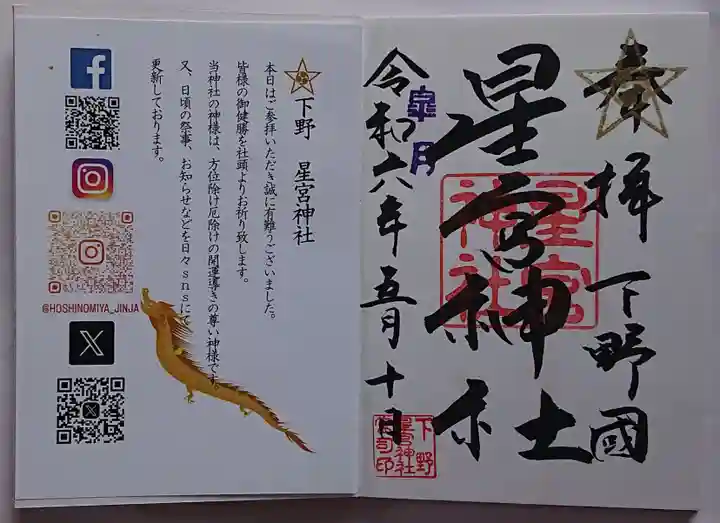 奉拝 下野國
星宮神社
星宮
神社
皐月
令和六年五月十日
下野
星宮神社
宮司印
下野 星宮神社
本日はご参拝いただき誠に有難うございました。
皆様の御健勝を社頭よりお祈り致します。
当神社の神様は、方位除け厄除けの開運導きの尊い神様です。
又、日頃の祭事、お知らせなどを日々snsにて
更新しております。
@HOSHINOMIYA_JINJA